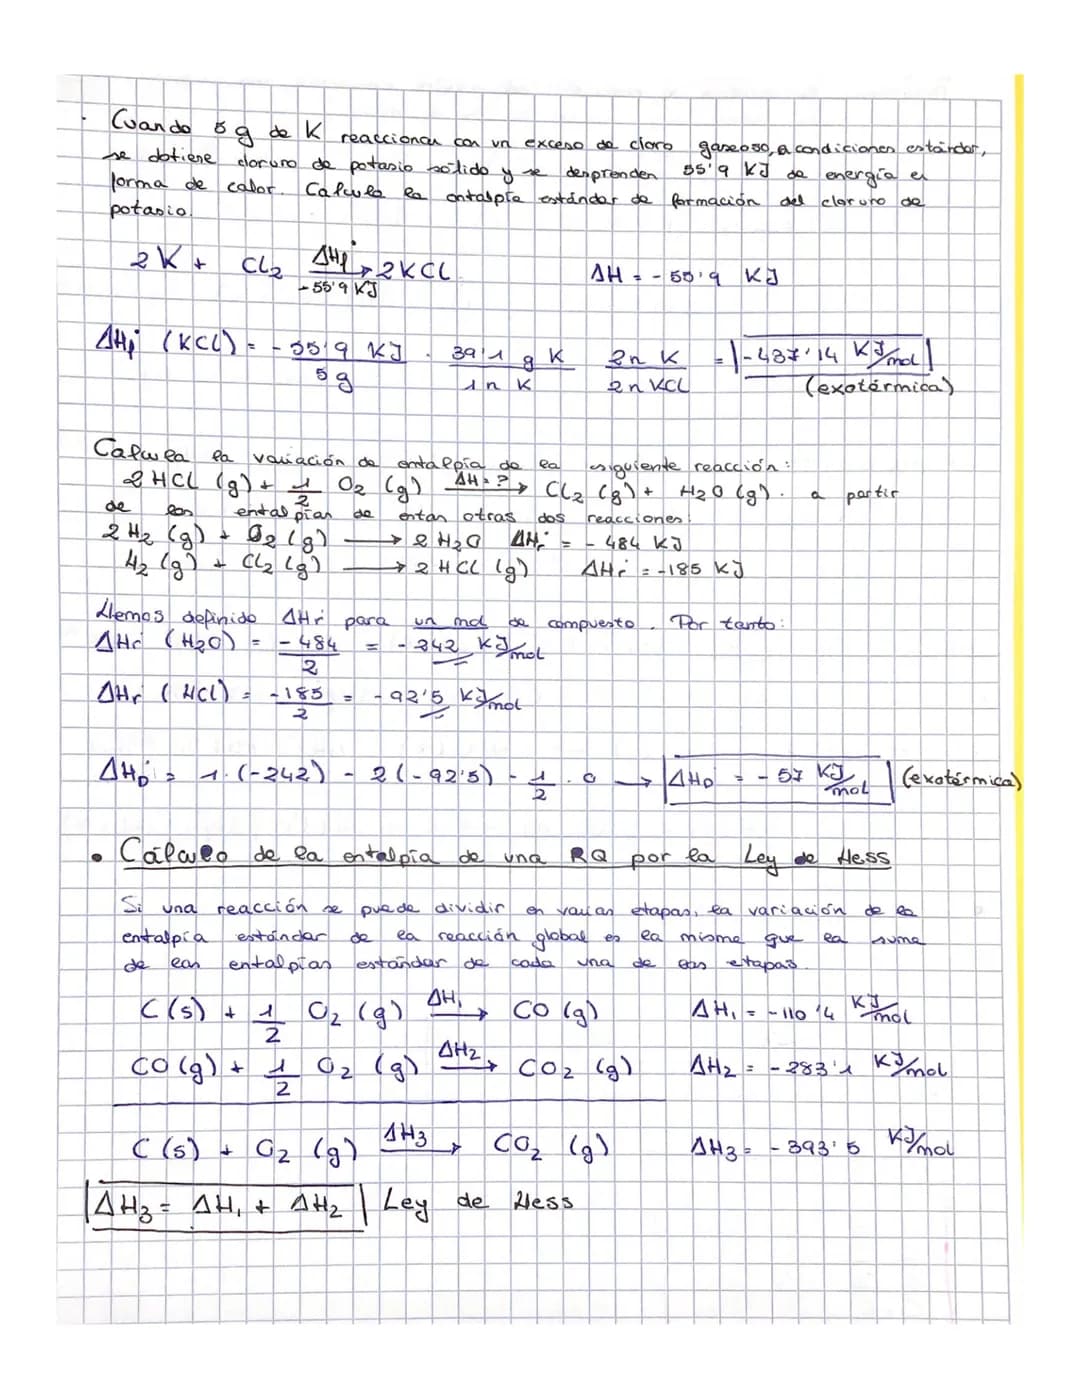 Cuando 5 g de K reaccionan con un exceso de cloro gaseoso, a condiciones estándar,
se obtiene cloruro de potasio sólido y se desprenden 55'9 KJ de energía en
forma de calor. Calcula la entalpía estándar de formación del cloruro de
potasio.
2K + Cl2 ΔHf° -55'9 KJ → 2KCl ΔH = -55'9 KJ
ΔHf° (KCl) = -55'9 KJ / 5 g · 39'1 g K / 1n K 2n K / 2n KCl = -437'14 KJ/mol
(exotérmica)
Calcula la variación de entalpía de la siguiente reacción:
2HCl (g) + 1/2 O2 (g) ΔH=? → Cl2 (g) + H2O (g). a partir
de las entalpías de estas otras dos reacciones:
2H2 (g) + O2 (g) → 2H2O ΔHr° = -484 KJ
H2 (g) + Cl2 (g) → 2HCl (g) ΔHr° = -185 KJ
Hemos definido ΔHr° para un mol de compuesto. Por tanto:
ΔHr° (H2O) = -484/2 = -242 KJ/mol
ΔHr (HCl) = -185/2 = -92'5 KJ/mol
ΔHp° = 1·(-242) - 2(-92'5) - 1/2 · 0 → ΔHp = -57 KJ/mol (exotérmica)
• Cálculo de la entalpía de una RQ por la Ley de Hess
Si una reacción se puede dividir en varias etapas, la variación de la
entalpía estándar de la reacción global es la misma que la suma
de las entalpías estándar de cada una de las etapas.
C (s) + 1/2 O2 (g) ΔH1 → CO (g) ΔH1 = -110'4 KJ/mol
CO (g) + 1/2 O2 (g) ΔH2 → CO2 (g) ΔH2 = -283'1 KJ/mol
C (s) + O2 (g) ΔH3 → CO2 (g) ΔH3 = -393'5 KJ/mol
ΔH3 = ΔH1 + ΔH2 Ley de Hess